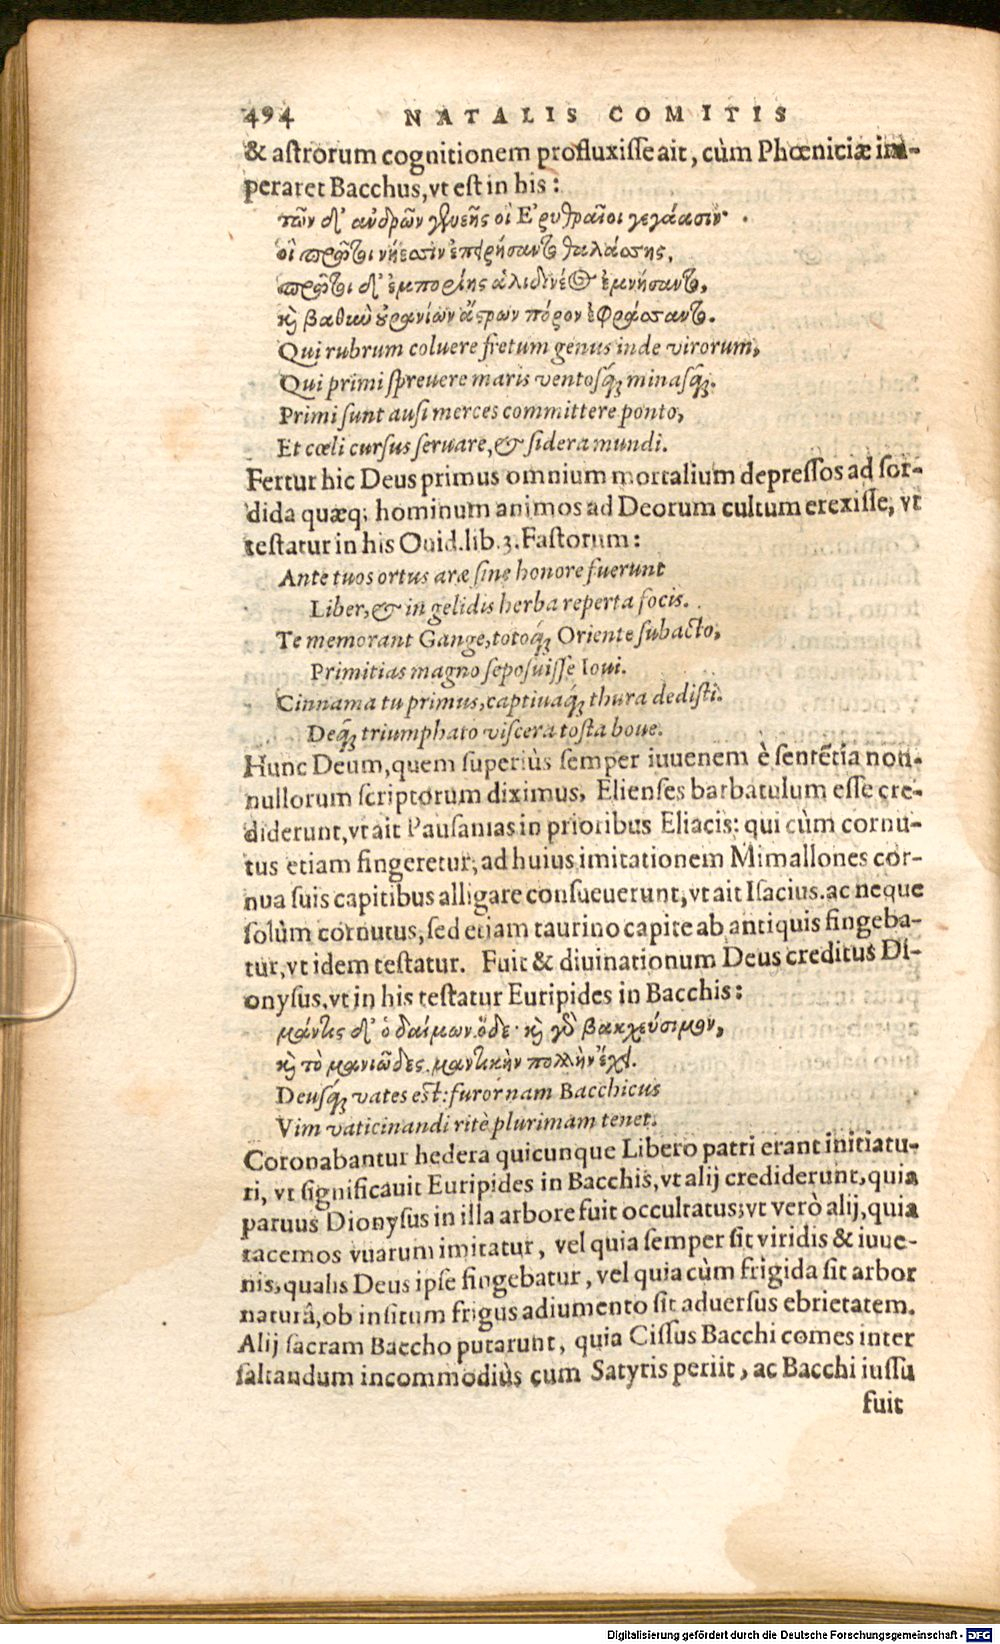 494 NATALIS COMITIS
& astrorum cognitionem profluxisse ait, cùm Phœniciæ im-
peraret Bacchus, vt est in his:
τῶν δ' ἀνδρῶν γενεῆς οἱ Ἐρυθραῖοι γεγάασιν·
οἳ πρῶτοι νήεσσιν ἐπειρήσαντο θαλάσσης,
πρῶτοι δ' ἐμπορίης ἁλιδινέος ἐμνήσαντο,
καὶ βαθὺν οὐρανίων ἄστρων πόρον ἐφράσσαντο.
Qui rubrum coluere fretum genus inde virorum,
Qui primi spreuere maris ventosq́; minasq́;.
Primi sunt ausi merces committere ponto,
Et cœli cursus seruare, & sidera mundi.
Fertur hic Deus primus omnium mortalium depressos ad sor-
dida quæq; hominum animos ad Deorum cultum erexisse, vt
testatur in his Ouid. lib. 3. Fastorum:
Ante tuos ortus aræ sine honore fuerunt
Liber, & in gelidis herba reperta focis.
Te memorant Gange, totoq́; Oriente subacto,
Primitias magno seposuisse Ioui.
Cinnama tu primus, captiuaq́; thura dedisti.
Deq́; triumphato viscera tosta boue.
Hunc Deum, quem superiùs semper iuuenem è sentẽtia non-
nullorum scriptorum diximus, Elienses barbatulum esse cre-
diderunt, vt ait Pausanias in prioribus Eliacis: qui cùm cornu-
tus etiam fingeretur, ad huius imitationem Mimallones cor-
nua suis capitibus alligare consueuerunt, vt ait Isacius. ac neque
solùm cornutus, sed etiam taurino capite ab antiquis fingeba-
tur, vt idem testatur. Fuit & diuinationum Deus creditus Di-
onysus, vt in his testatur Euripides in Bacchis:
μάντις δ' ὁ δαίμων ὅδε· καὶ γὸ βακχεύσιμον,
καὶ τὸ μανιῶδες. μαντικὴν πολλὴν ἔχει.
Deusq́; vates est: furor nam Bacchicus
Vim vaticinandi ritè plurimam tenet.
Coronabantur hedera quicunque Libero patri erant initiatu-
ri, vt significauit Euripides in Bacchis, vt alij crediderunt, quia
paruus Dionysus in illa arbore fuit occultatus; vt verò alij, quia
racemos vuarum imitatur, vel quia semper sit viridis & iuue-
nis, qualis Deus ipse fingebatur, vel quia cùm frigida sit arbor
naturâ, ob insitum frigus adiumento sit aduersus ebrietatem.
Alij sacram Baccho putarunt, quia Cissus Bacchi comes inter
saltandum incommodiùs cum Satyris periit, ac Bacchi iussu
fuit
Digitalisierung gefördert durch die Deutsche Forschungsgemeinschaft - DFG